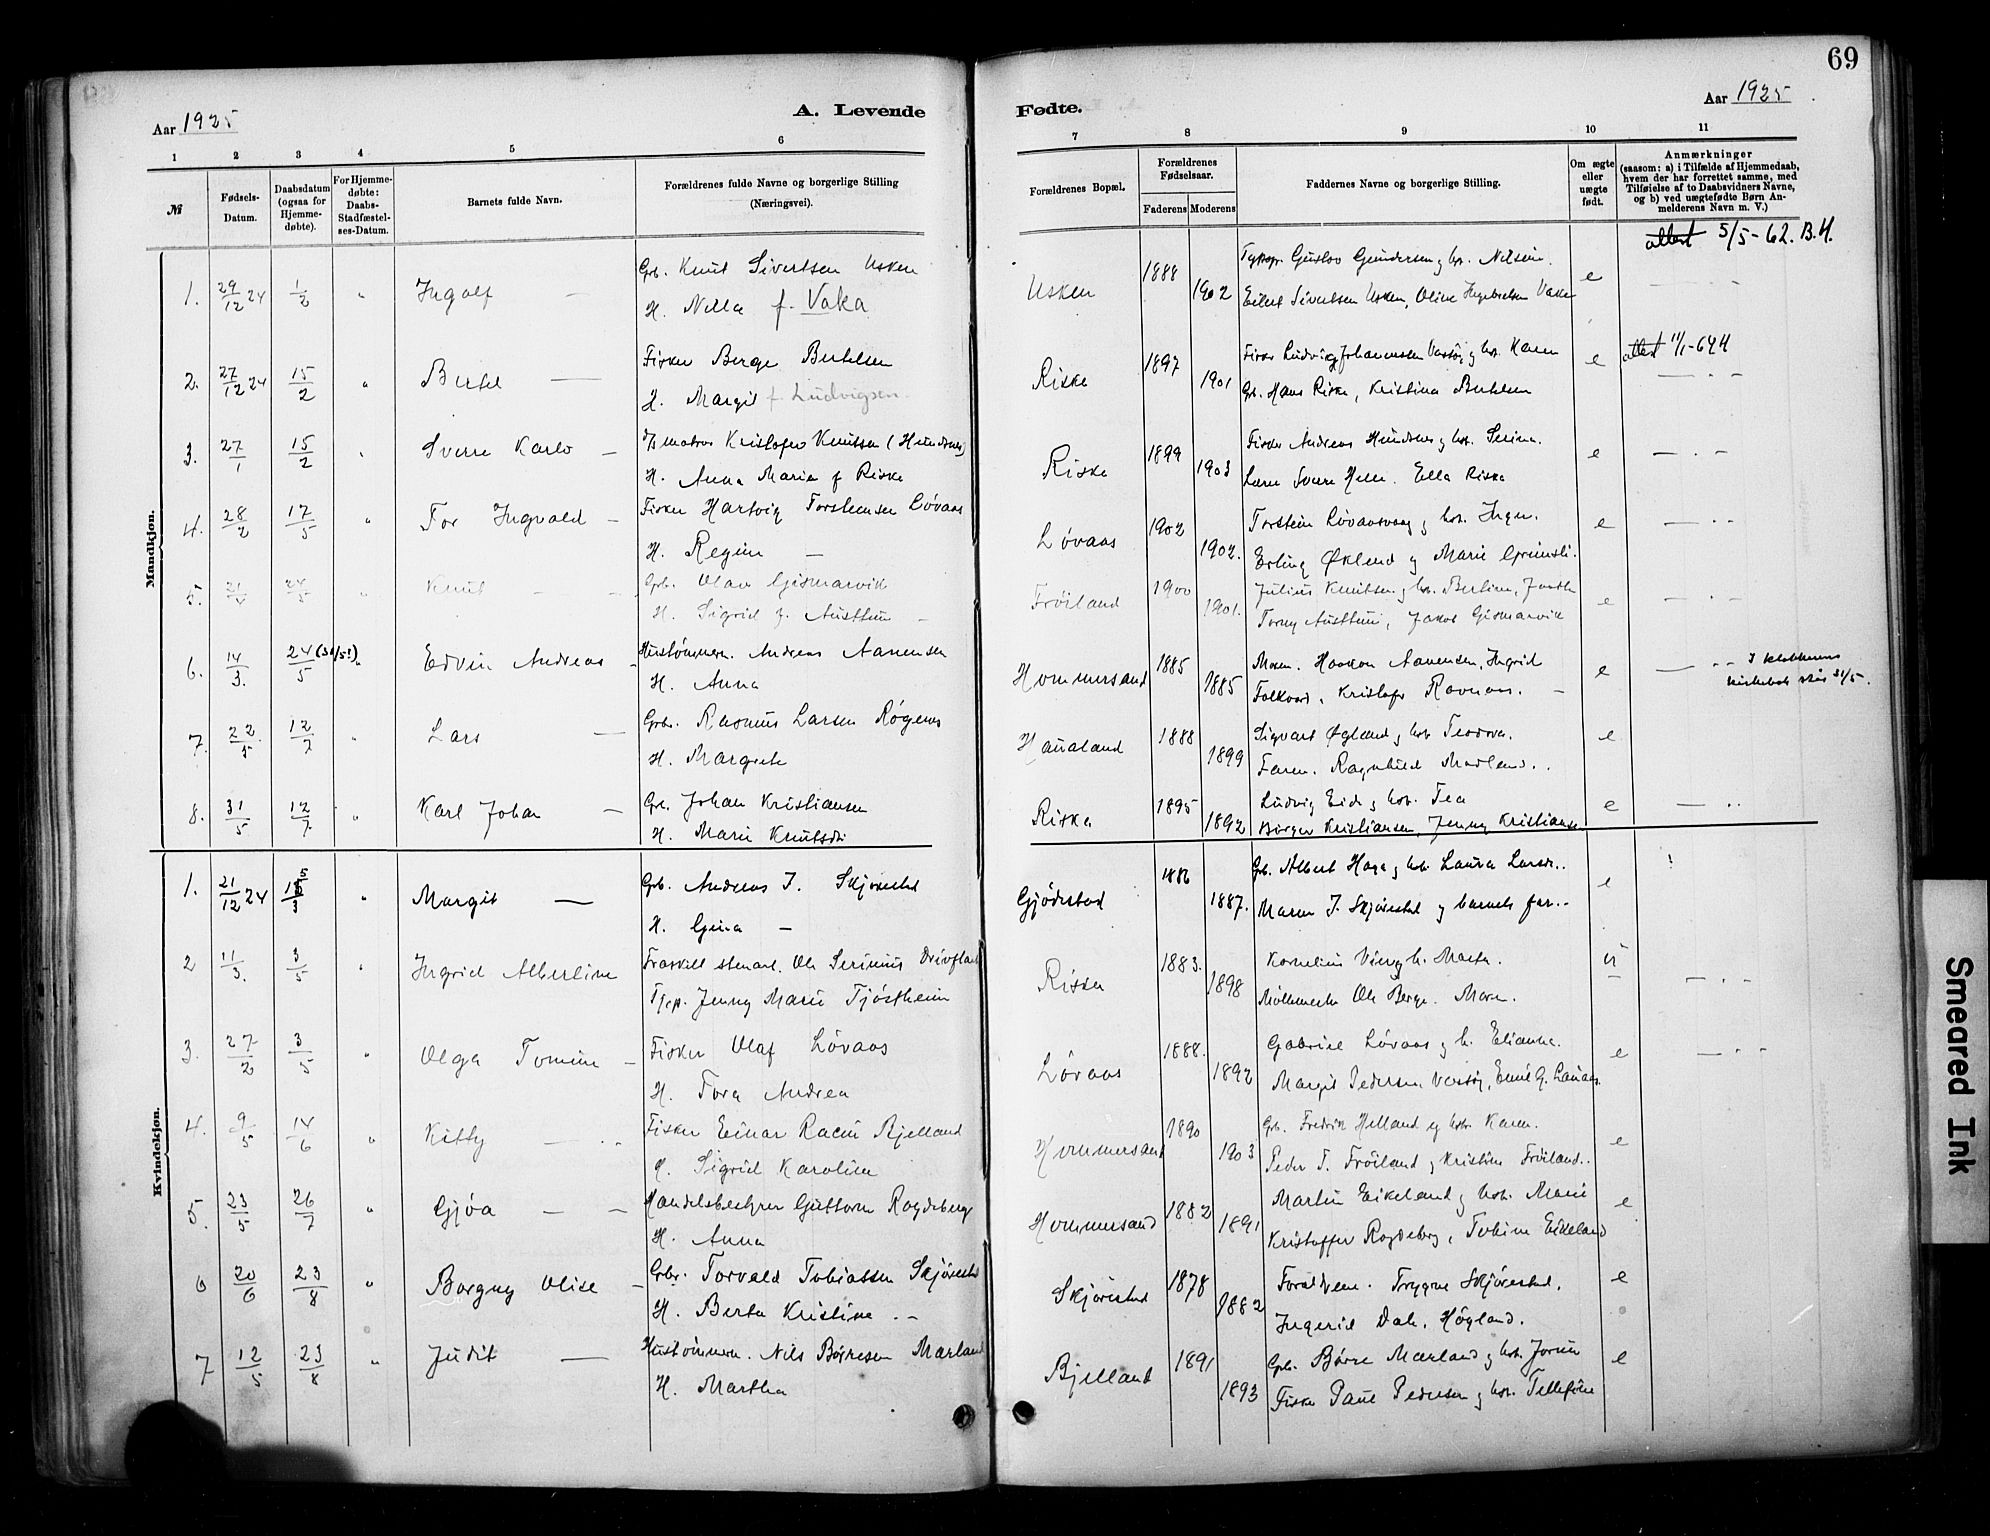 69
Aar 1925
A. Levende
Fødte.
Aar 1925
1 2 3 4 5 6
7 8 9 10 11
№
Fødsels-Datum.
Daabsdatum (ogsaa for Hjemme-døbte).
For Hjemme-døbte: Daabs-Stadfæstel-ses-Datum.
Barnets fulde Navn.
Forældrenes fulde Navne og borgerlige Stilling
(Næringsvei).
Forældrenes Bopæl.
Forældrenes Fødselsaar.
Faderens Moderens
Faddernes Navne og borgerlige Stilling.
Om ægte eller uægte født.
Anmærkninger
(saasom: a) i Tilfælde af Hjemmedaab,
hvem der har forrettet samme, med
Tilføielse af to Daabsvidners Navne,
og b) ved uægtefødte Børn An-
melderens Navn m. V.)
attest 5/5-62. B.H.
Mandkjøn.
1. 29/12 24 1/2 " Ingolf — Grb. Knut Sivertsen Usken
H. Nilla f. Vaka
Usken 1888 1902 Gustav Gundersen og hst. Nilsine.
Eilert Sivertsen Usken, Oline Ingebretsen e
2. 27/12 24 15/2 " Bertel — Fisker Berge Bertelsen
H. Margit f. Ludvigsen
Riska 1897 1901 Fisker Ludvig Johannessen og hst. Karen
Gb. Hans Riska, Kristina Bertelsen e attest 11/1-64
3. 27/1 15/2 " Sverre Karlo — matros Kristofer Knutsen (Hundsnes)
H. Anna Marie f Riska
Riska 1899 1903 Fisker Andreas Hundsnes og hst. Serina.
Sverre Helle. Ella Riska e — . -
4. 28/2 17/5 " Tor Ingvald — Fisker Hartvig Torstensen Løvaas
H. Regine —
Løvaas 1902 1902. Torstein og hst. Inger.
Erling Økland og Marie e
5. 24/5 " Knut — Grb. Olav Gismarvik
H. Sigrid f. Austtun
Frøiland 1900 1901. Julius Knutsen og hst. Bertine,
Torny Austtun, Jakob Gismarvik e
6. 14/3. 24/5 (31/5!) " Edvin Andreas — Hustømmerm. Andreas Aanensen
H. Anna
Hommersand 1885 1885 Moren. Haakon Aanensen, Ingrid
Folkvord, Kristofer e — I klokkerens
kirkebok står 31/5.
7. 22/5 12/7 " Lars — Grbr. Rasmus Larsen
H. Margrete
Haualand 1888 1899 Sigvart Øgland og hst. Teodora.
Faren. Ragnhild e
8. 31/5 12/7 " Karl Johan — Grb. Johan Kristiansen
H. Marie Knutsdtr
Riska 1895 1892 Ludvig Eide og hst. Tea
Børger Kristiansen, Jenny Kristiansen e
Kvindekjøn.
1. 21/12 24 15/3 " Margit — Grb. Andreas J. Skjørestad
H. Gina —
Gjødestad 1886 1887. Gb. Albert Haga og hst. Laura
Maren J. Skjørestad og barnets far. e
2 11/3. 3/5 " Ingrid Albertine Fraskilt Ole Serinius
Jenny Marie Tjøstheim
Riska 1883. 1898 Kornelius og h. Marta.
Ole Berge. Moren. u — . -
3. 27/2 3/5 " Olga Tomine — Fisker Olaf Løvaas
H. Tora Andrea
Løvaas 1888. 1892 Gabriel Løvaas og h. Elianna.
Margit Pedersen e — . -
4. 9/5 14/6 " Kitty — Fisker Einar Bjelland
H. Sigrid Karoline
Hommersand 1890 1903 Gb. Fredrik Helland og hst. Karen.
Peder T. Frøiland og Kristine Frøiland. e
5. 23/5 26/7 " Gjøa — Handelsbestyrer Guttorm Rogdeberg
H. Anna
Hommersand 1882 1891 Martin Eikeland og hst. Marie
Kristoffer Rogdeberg, Tobine Eikeland e
6 20/6 23/8 " Borgny Olise — Grbr. Torvald Tobiassen Skjørestad
H. Berta Kristine . -
Skjørestad 1878 1882 Forældrene. Trygve Skjørestad.
Ingerid Dale, Høgland. e
7 12/5 23/8 " Judit — Hustømmerm. Nils Børresen Marland
H. Martha
Bjelland 1891 1893 Grb. Børre Marland og hst. Jorine
Fisker Paul Pedersen og hst. e
Smeared Ink